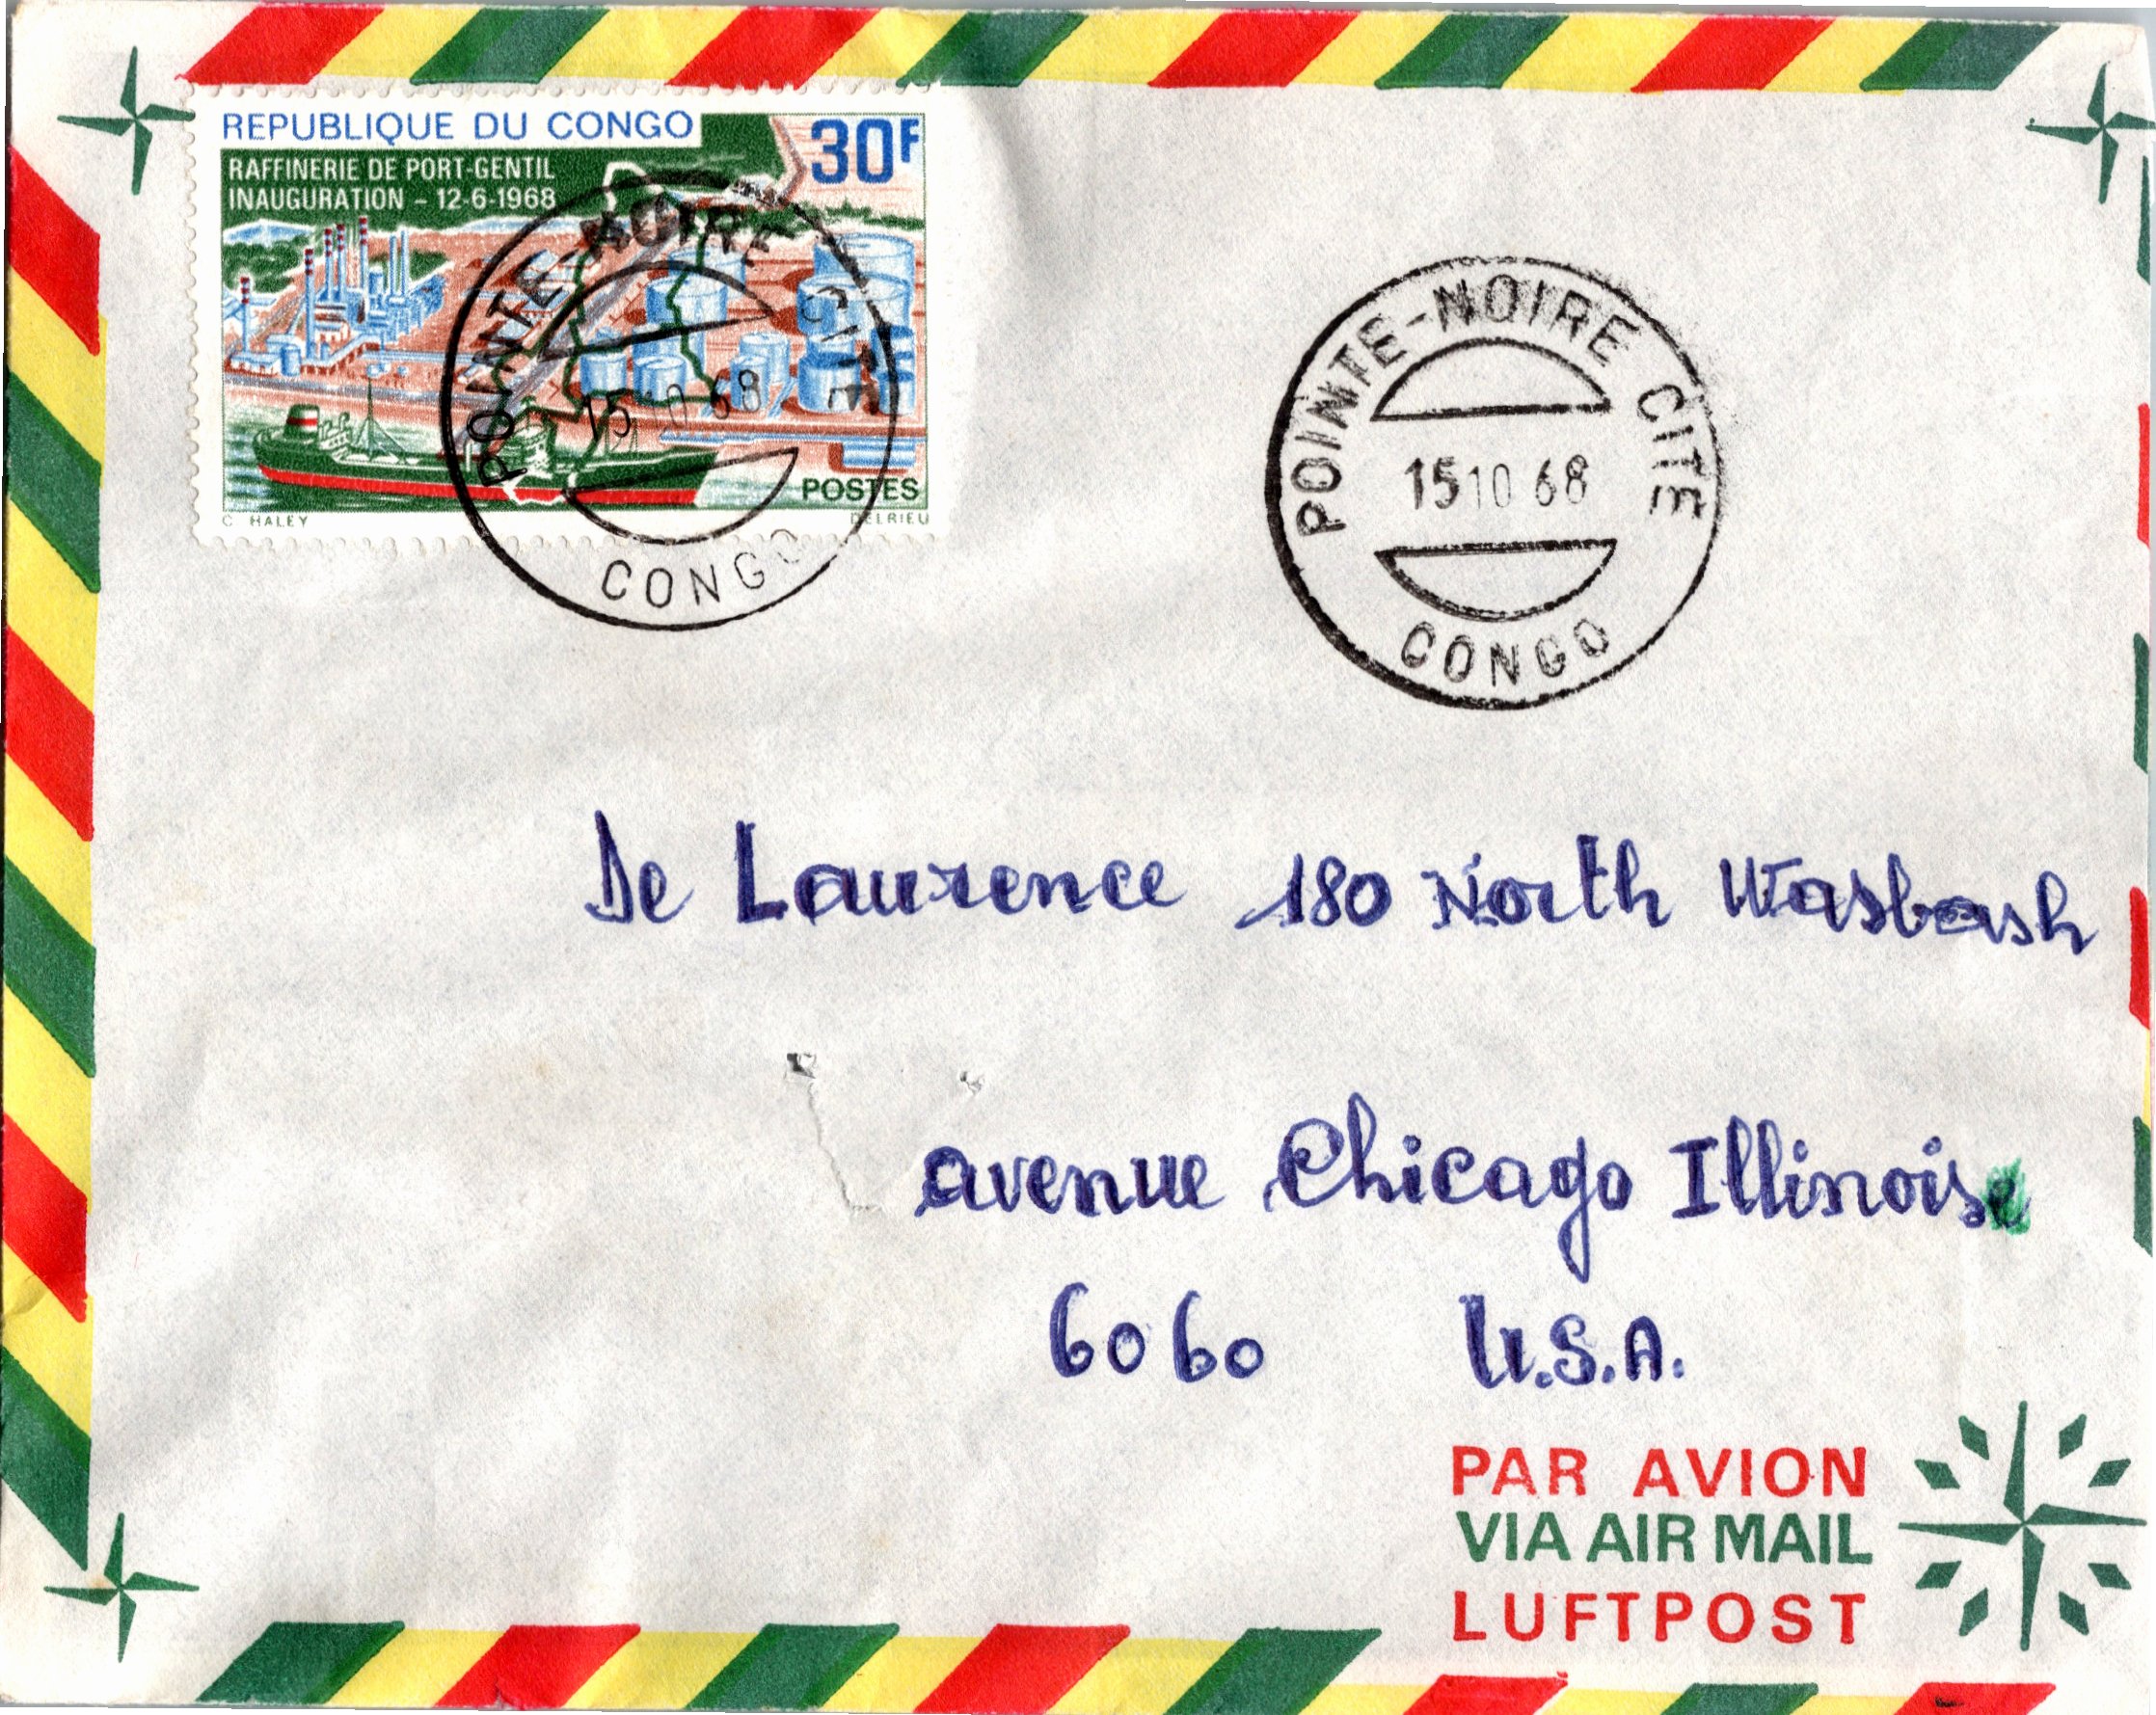 REPUBLIQUE DU CONGO
30F
RAFFINERIE DE PORT-GENTIL
INAUGURATION - 12-6-1968
POSTES
C HALEY
DELRIEU
POINTE-NOIRE CITE
15 10 68
CONGO
POINTE-NOIRE CITE
15 10 68
CONGO
De Laurence 180 North Wasbash
avenue Chicago Illinoise
6060 U.S.A.
PAR AVION
VIA AIR MAIL
LUFTPOST